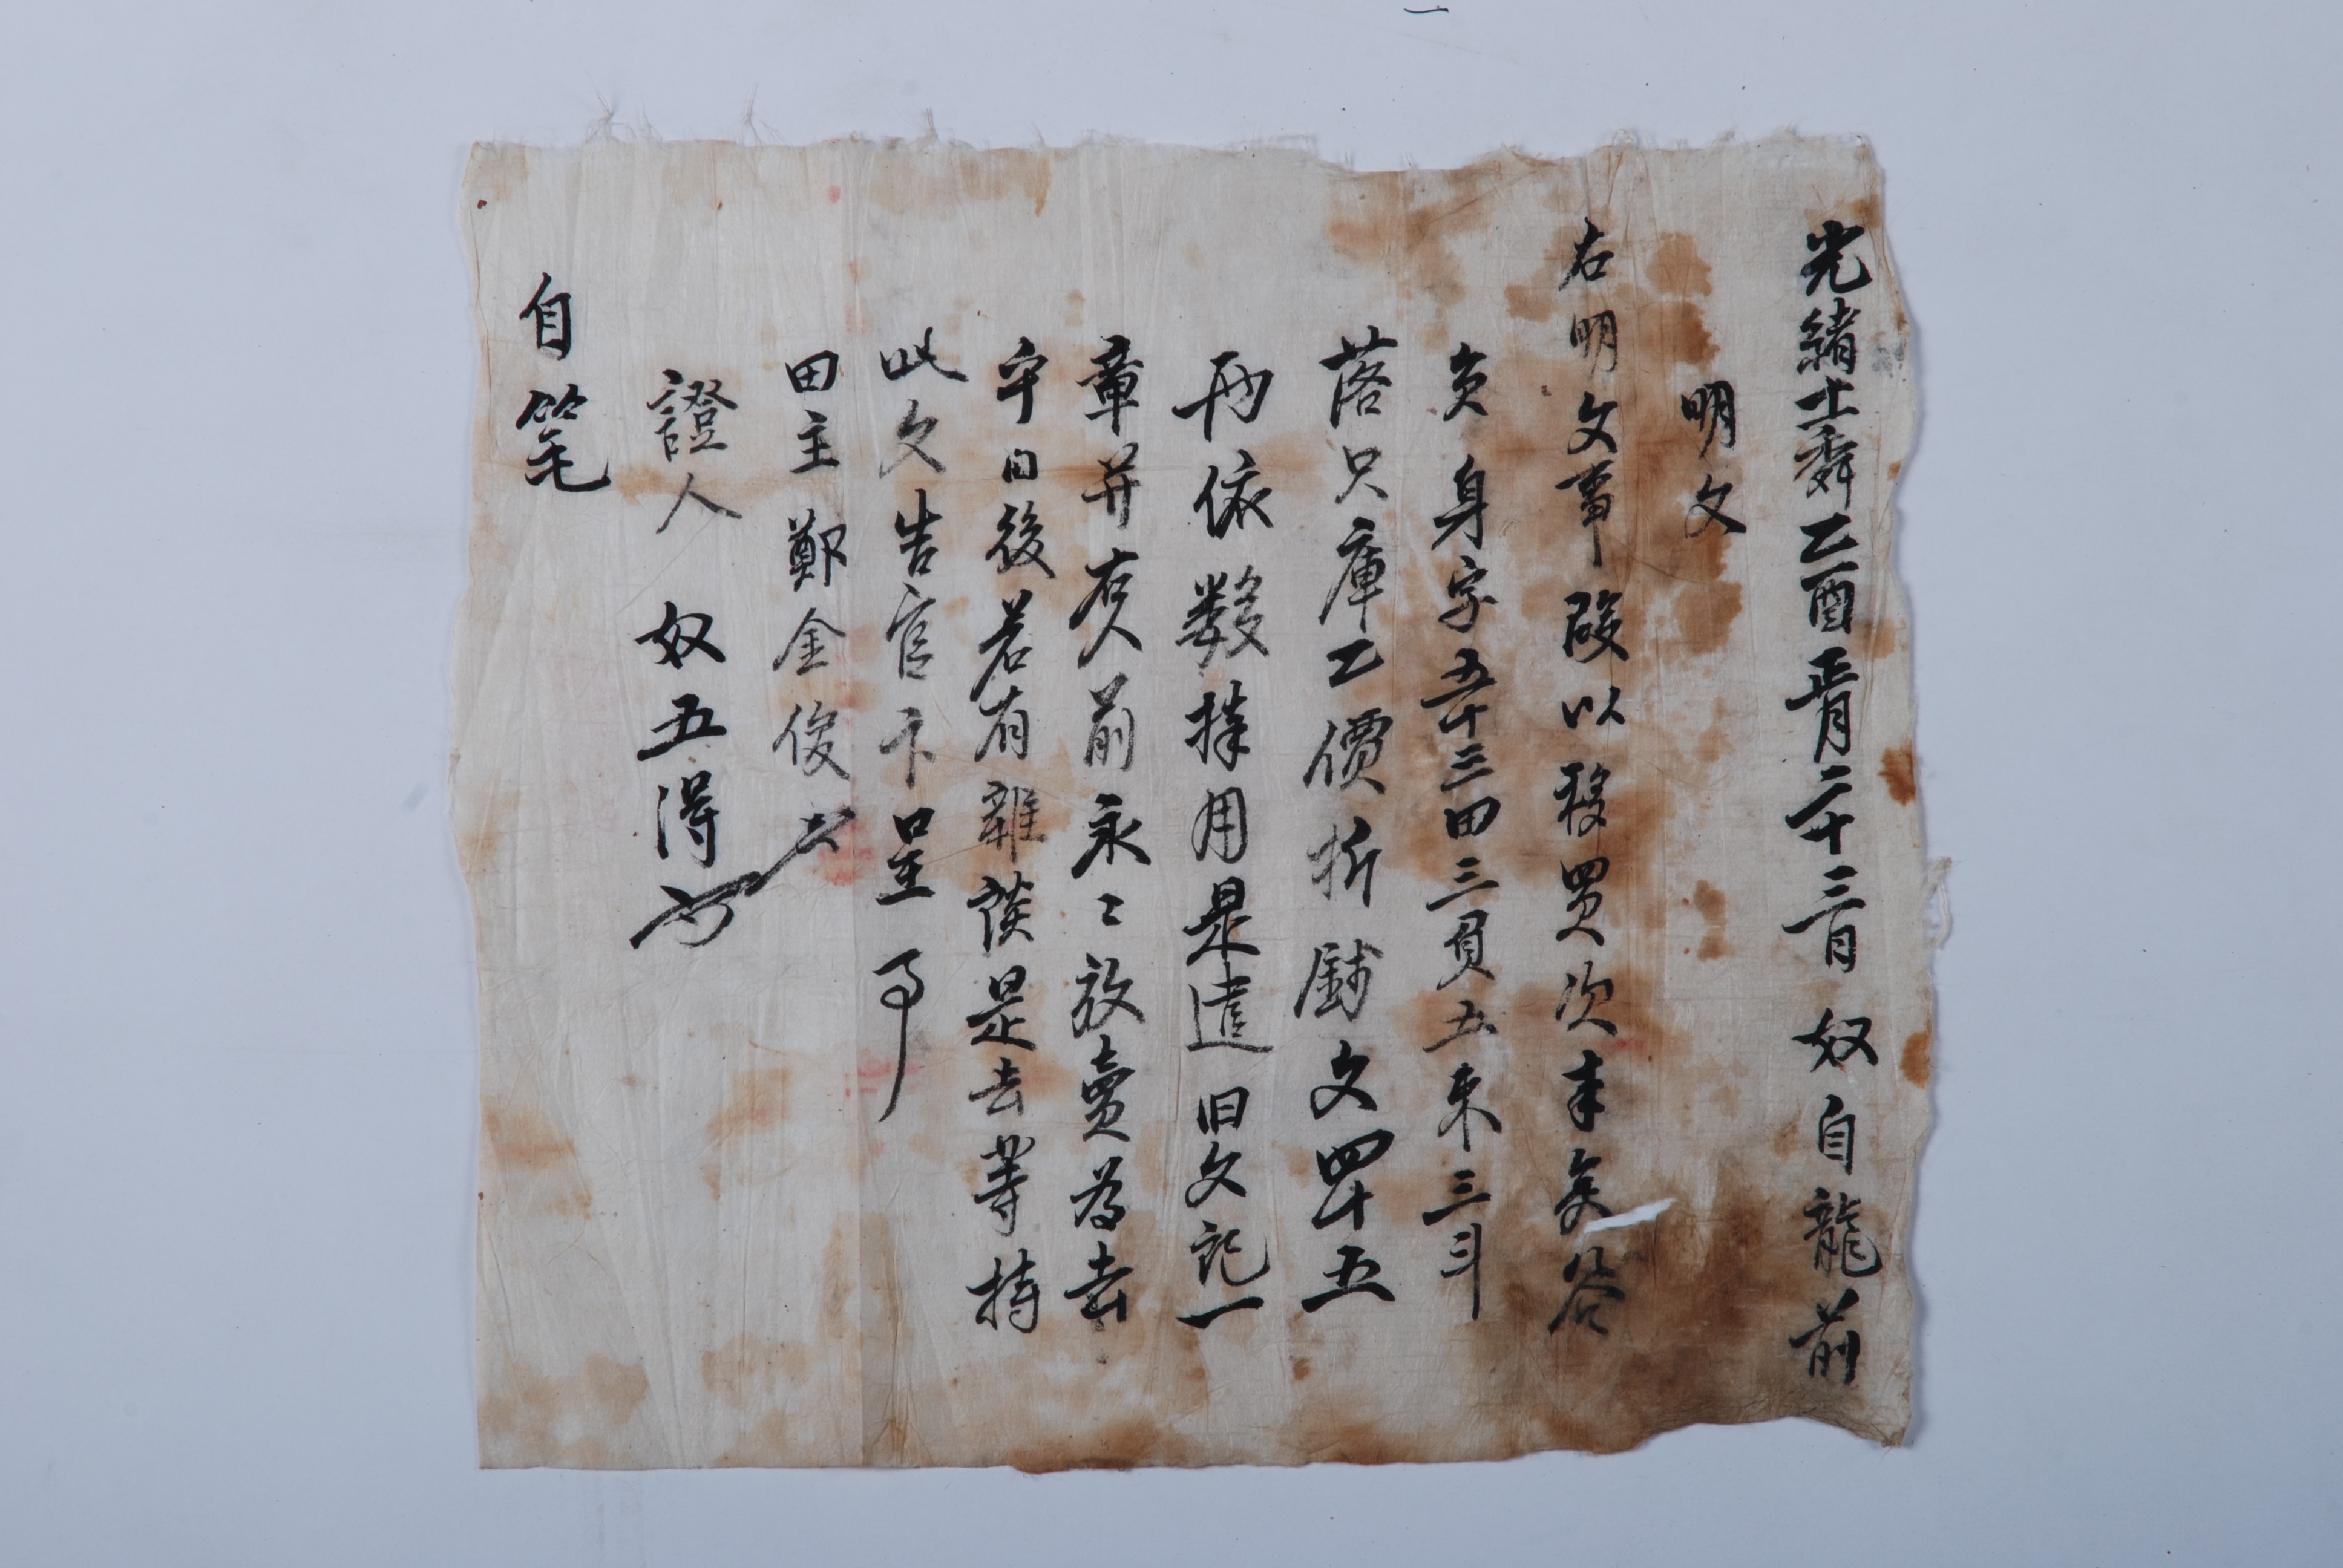 光緖十一年乙酉正月二十三日 奴自龍前
明文
右明文事段以移買次伏在
員身字五十三田三負五束三斗
落只庫乙價折錢文四十五
兩依數捧用是遣旧文記一
章幷右人前永〻放賣爲去
乎日後若有雜談是去等持
此文告官卞呈事
田主 鄭金俊
證人 奴五得
自筆